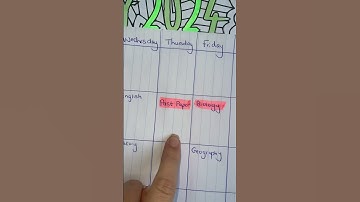 2024
Wednesday Thursday Friday
English Past Paper Biology
Geography